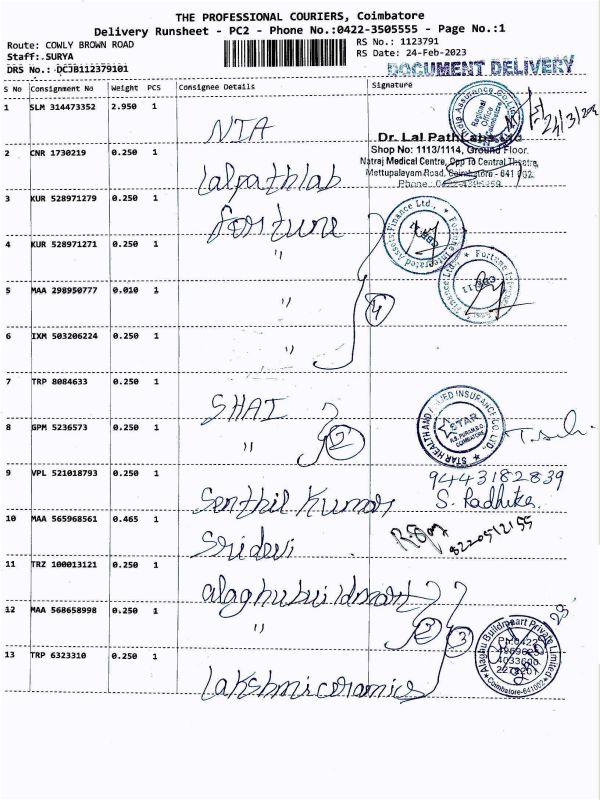 THE PROFESSIONAL COURIERS, Coimbatore
Delivery Runsheet - PC2 - Phone No.:0422-3505555 - Page No.:1
Route: COWLY BROWN ROAD
RS No.: 1123791
Staff:.SURYA
RS Date: 24-Feb-2023
DRS No.: DCJB112379101
DOCUMENT DELIVERY
S No Consignment No Weight PCS Consignee Details Signature
1 SLM 314473352 2.950 1 NIA
Regional Office
24/3/202
2 CNR 1730219 0.250 1 Lalpathlab
Dr. Lal PathLabs Ltd
Shop No: 1113/1114, Ground Floor.
Natraj Medical Centre, Opp To Central Theatre,
Mettupalayam Road, Coimbatore - 641 002.
Phone:
3 KUR 528971279 0.250 1 fortune
4 KUR 528971271 0.250 1 "
5 MAA 298950777 0.010 1 "
6 IXM 503206224 0.250 1 "
4
Fortune Integrated Assets Finance Ltd.,
CBE
7 TRP 8084633 0.250 1 SHAI
8 GPM 5236573 0.250 1 "
2
STAR HEALTH AND ALLIED INSURANCE CO. LTD.
STAR
R.S. PURAM B.O
COIMBATORE
9 VPL 521018793 0.250 1 Senthil Kumar
9443182839
S. Radhika
10 MAA 565968561 0.465 1 Sridevi
8220512155
11 TRZ 100013121 0.250 1 alaghubuildmart
12 MAA 568658998 0.250 1 "
2
3
13 TRP 6323310 0.250 1 Lakshmiceramics
Alaghu Buildmaart Private Limited
Coimbatore-641002